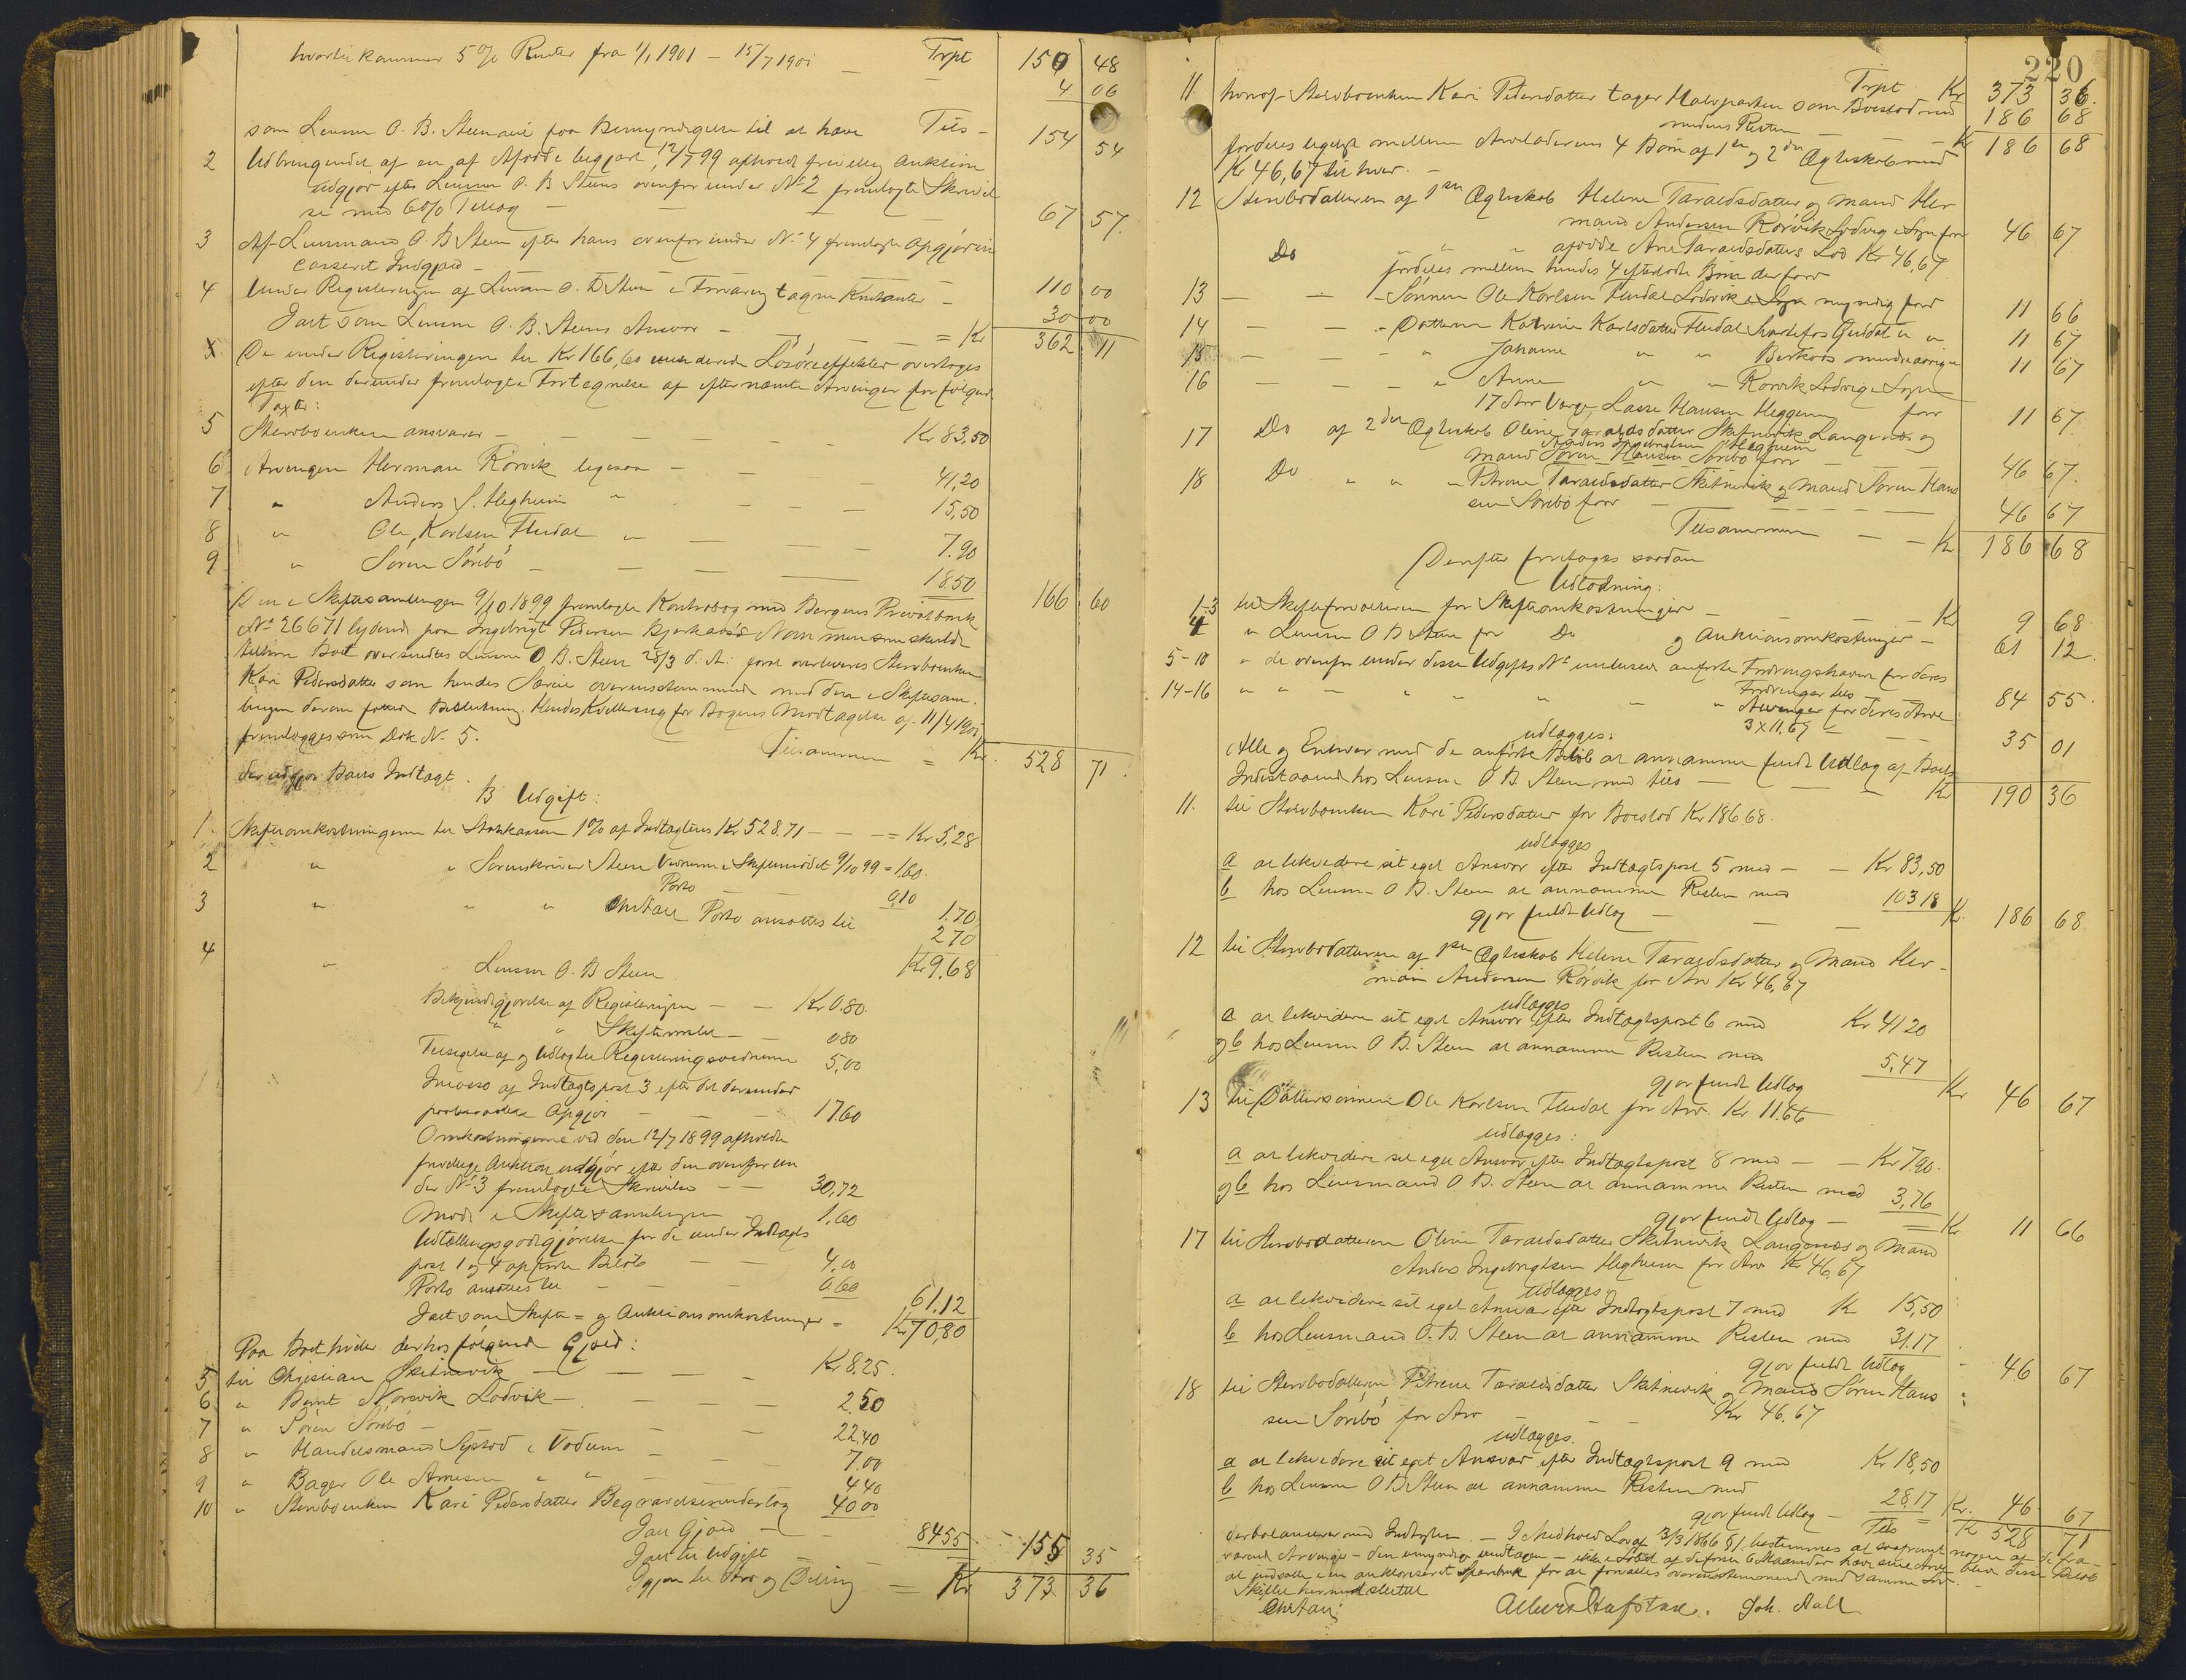 hvortil kommer 5% Renter fra 1/1 1901 - 15/7 1901 - Trpt 150 48
4 06
som Lensm O. B. Steen vil faa Bemyndigelse til at hæve Tils - 154 54
2 Udbringendet af en af Afdøde begjært, 12/7 99 afholdt frivillig Auktion
udgjør efter Lensm O. B. Steens ovenfor under No 2 fremlagte Skrivel
se med 6% Tillæg - 67 57.
3 Af Lensmand O. B. Steen efter hans ovenfor under No 4 fremlagte Opgjør in
casseret Indgjæld - 110 00
4 Under Registeringen af Lensm O. B. Steen i Forvaring tagne Kontanter - 30 00
Ialt som Lensm O. B. Steens Ansvar - = Kr 362 11
5. De under Registeringen til Kr 166,60 vurderede Løsøreeffekter overtoges
efter den derunder fremlagte Fortegnelse af efternævnte Arvinger for følgende
Taxter:
5 Stervboenken ansvarer - Kr 83,50
6 Arvingen Herman Rörvik ligesaa - 41,20
7 " Anders I. Hegheim " - 15,50
8 " Ole Karlsen Fludal " - 7.90
9 " Sören Söribö - 18.50
166 60
Den i Skiftesamlingen 9/10 1899 fremlagte Kontrabog med Bergens Privatbank
No 26671 lydende paa Ingebrigt Pedersen Bjerkaas's Navn men som skulde
tilhøre Boet oversendtes Lensm O. B. Steen 28/3 d. A. forat overleveres Stervboenken
Kari Pedersdatter som hendes Særeie overensstemmende med den i Skiftesam-
lingen derom fattede Beslutning. Hendes Kvittering for Bogens Modtagelse af 11/4 1901
fremlægges som Dok No 5.
Tilsammen = Kr. 528 71.
der udgjør Boets Indtægt.
B Udgift:
1. Skifteomkostningerne til Statskassen 1% af Indtægtens Kr 528.71 - - - = Kr 5,28
2 " " Sorenskriver Steen Vidnerne i Skiftemödet 9/10 99 = 1.60.
Porto 0,10
1.70
3 " " " Porto ansættes til 2.70
Kr 9.68
4 " Lensm O. B Steen
Bekjendtgjørelse af Registeringen - - Kr 0.80.
" " Skiftemødet - 0.80
Tilsigelse af og Udlæg til Registeringsvidnerne 5,00
Incasso af Indtægtspost 3 efter det derunder
paaberaabte Opgjør - - - 17.60
Omkostningerne ved den 12/7 1899 afholdte
frivillige Auktion udgjør efter den ovenfor un
der No 3 fremlagte Skrivelse - - 30,72
Møde i Skiftesamlingen - 1.60
Udtællingsgodtgjørelse for de under Indtægts
post 1 og 4 opførte Beløb - - 4.00
Porto ansættes til - - 0.60
61.12
Ialt som Skifte- og Auktionsomkostninger = Kr 70,80
Paa Boet hviler derhos følgende Gjæld:
5 til Christian Skitnevik - - Kr 8.25.
6 " Bernt Norevik Lodvik - 2.50
7 " Sören Söribö - 22.40
8 " Handelsmand Systad i Vadum - 7.00
9 " Bager Ole Arnesen " " - 4.40
10 " Stervboenken Kari Pedersdatter Begravelsesudlæg 40.00
Ialt Gjæld - 84.55
Ialt til Udgift - 155 35
Igjen til Arv og Deling = Kr 373 36
220
Trpt Kr 373 36.
11. hvoraf Stervboenken Kari Pedersdatter tager Halvparten som Boeslod med 186 68
medens Resten - Kr 186 68
fordeles ligeligt mellem Arveladerens 4 Børn af 1ste og 2det Ægteskab med
Kr 46,67 til hver. -
12 Stervbodatteren af 1ste Ægteskab Helene Taraldsdatter og Mand Her
mand Andersen Rörvik Lodvig i Sogn for 46 67.
Do " " " afdøde Ane Taraldsdatters Lod Kr 46,67
fordeles mellem hendes 4 efterladte Børn der faar
13 - - - Sønnen Ole Karlsen Fludal Lodvik i Sogn myndig faar 11 66
14 - - - Datteren Katrine Karlsdatter Fludal Guddal " " 11 67
15 - - - " Johanne " " Berkaas mindreaarige 11 67
16 - - - " Anne " " Rørvik Lodvig i Sogn
17 Aar Verge, Lasse Hansen Heggeim faar 11 67.
17 Do af 2det Ægteskab Oline Taraldsdatter Skitnevik Langenæs og
Anders Ingebrigtsen Heggheim
Mand Sören Hansen Söribö faar 46 67.
18 Do " " " Petrine Taraldsdatter Skitnevik og Mand Sören Han
sen Söribö faar - 46 67
Tilsammen - - Kr 186 68
Derefter foretages saadan
Udlodning:
1-3 til Skifteforvalteren for Skifteomkostninger - Kr 9 68
4 " Lensm O B Steen for Do og Auktionsomkostninger - 61 12
5-10 " de ovenfor under disse Udgifts No inclusive anførte Fordringshavere for deres
Fordringer tils - 84 55.
14-16 " " " " " " " Arvinger for deres Arve
3 x 11,67 - 35 01
udlægges:
Alle og Enhver med de anførte Beløb at annamme fuldt Udlæg af Boets
Indestaaende hos Lensm O B. Steen med tils - Kr 190 36
11. til Stervboenken Kari Pedersdatter for Boeslod Kr 186 68.
udlægges
a at likvidere sit eget Ansvar efter Indtægtspost 5 med - - Kr 83,50
b hos Lensm O B. Steen at annamme Resten med 103 18
gjør fuldt Udlæg - Kr. 186 68
12 til Stervbodatteren af 1ste Ægteskab Helene Taraldsdatter og Mand Her-
man Andersen Rörvik for Arv Kr 46,67
udlægges
a at likvidere sit eget Ansvar efter Indtægtspost 6 med Kr 41 20
og b hos Lensm O B. Steen at annamme Resten med 5.47
gjør fuldt Udlæg Kr 46 67
13 til Dattersønnen Ole Karlsen Fludal for Arv Kr 11.66
udlægges:
a at likvidere sit eget Ansvar efter Indtægtspost 8 med - - Kr 7.90.
og b hos Lensmand O B. Steen at annamme Resten med 3,76
gjør fuldt Udlæg - = Kr 11 66
17 til Stervbodatteren Oline Taraldsdatter Skitnevik Langenæs og Mand
Anders Ingebrigtsen Hegheim for Arv Kr 46,67
udlægges
a at likvidere sit eget Ansvar efter Indtægtspost 7 med Kr 15,50
b hos Lensmand O. B. Steen at annamme Resten med 31.17
gjør fuldt Udlæg - 46 67
18 til Stervbodatteren Petrine Taraldsdatter Skitnevik og Mand Sören Han
sen Söribö for Arv - - Kr 46.67
udlægges.
a at likvidere sit eget Ansvar efter Indtægtspost 9 med Kr 18,50
b hos Lensm O B Steen at annamme Resten med 28.17
gjør fuldt Udlæg - Kr. 46 67
Tils = Kr 528 71
der balancerer med Indtægten. - I Medhold Lov af 3/3 1866 § 1 bestemmes at saafremt nogen af de fra-
værende Arvinger - den umyndige undtagen - ikke i Løbet af de første 6 Maaneder hæve sine Arve blive disse Beløb
at indsætte i en auktoriseret Sparebank for at forvaltes overensstemmende med samme Lov. -
Skiftet hermed sluttet
Chr Aall Albert Hafstad. Joh. Aall